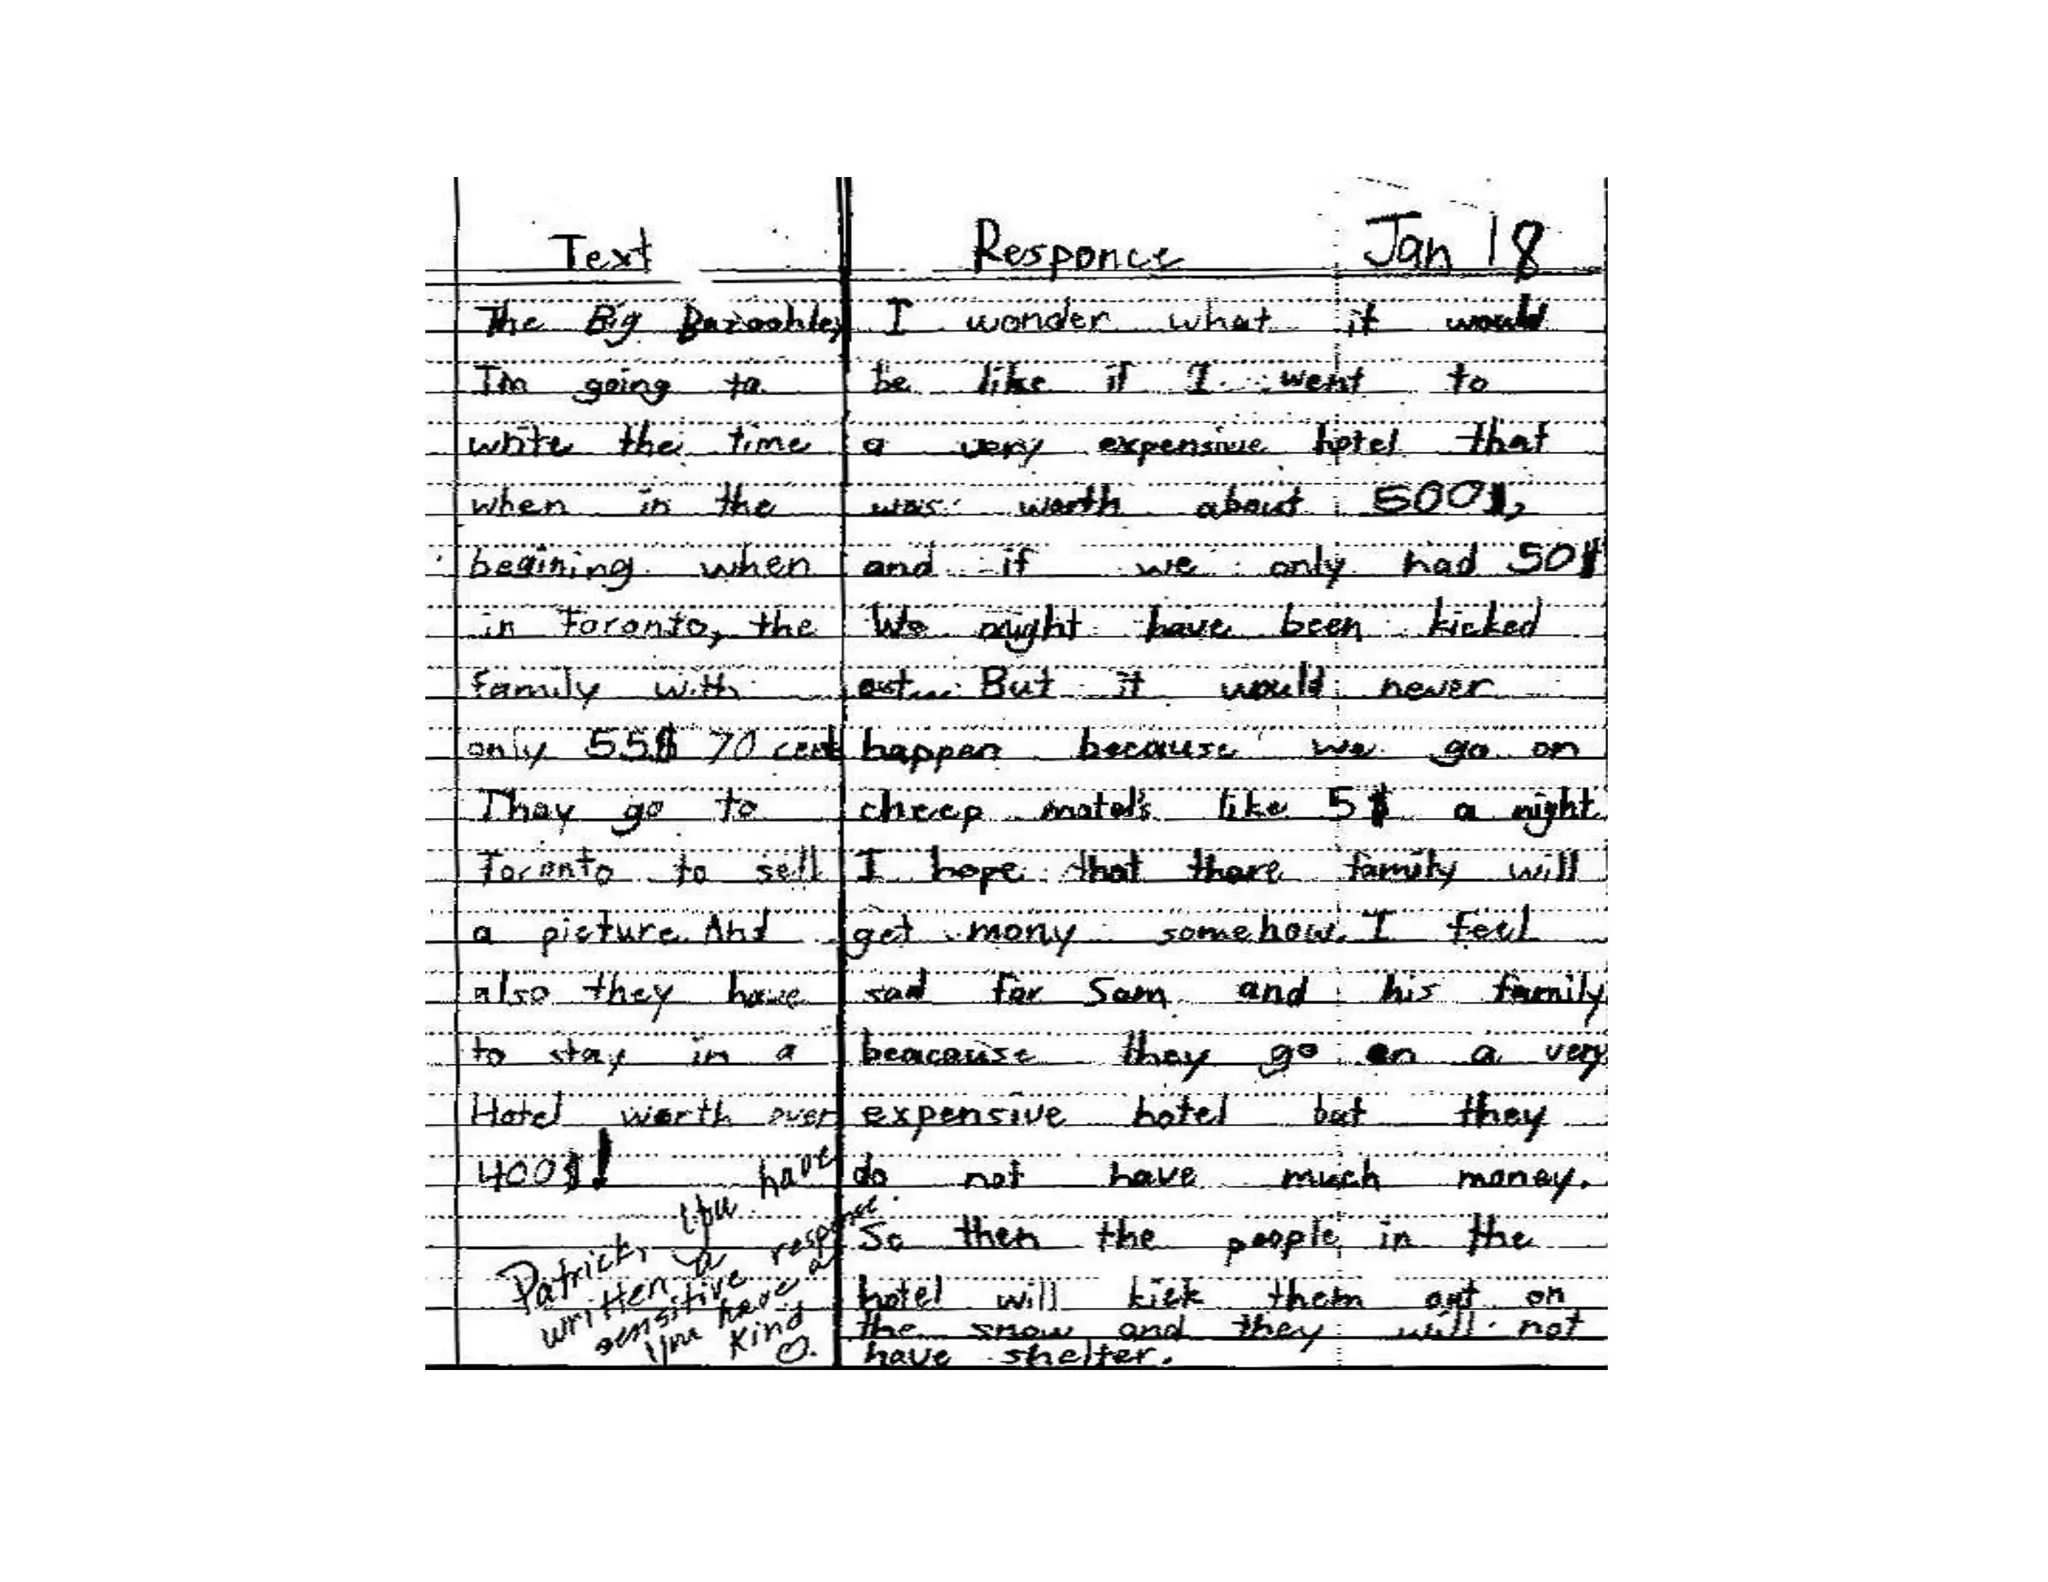 Text
The Big Bazoohley
I'm going to
write the time
when in the
begining when
in Toronto, the
family with
only 55$ 70 cent
They go to
Toronto to sell
a picture. And
also they have
to stay in a
Hotel worth over
400$!
Patrick, you have
written a
sensitive response
You have a
kind
Responce Jan 18
I wonder what it would
be like if I went to
a very expensive hotel that
was worth about 500$,
and if we only had 50$
We might have been kicked
out. But it would never
happen because we go on
cheep motel's like 5$ a night
I hope that there family will
get mony somehow. I feel
sad for Sam and his family
beacause they go on a very
expensive hotel but they
do not have much money.
So then the people in the
hotel will kick them out on
the snow and they will not
have shelter.